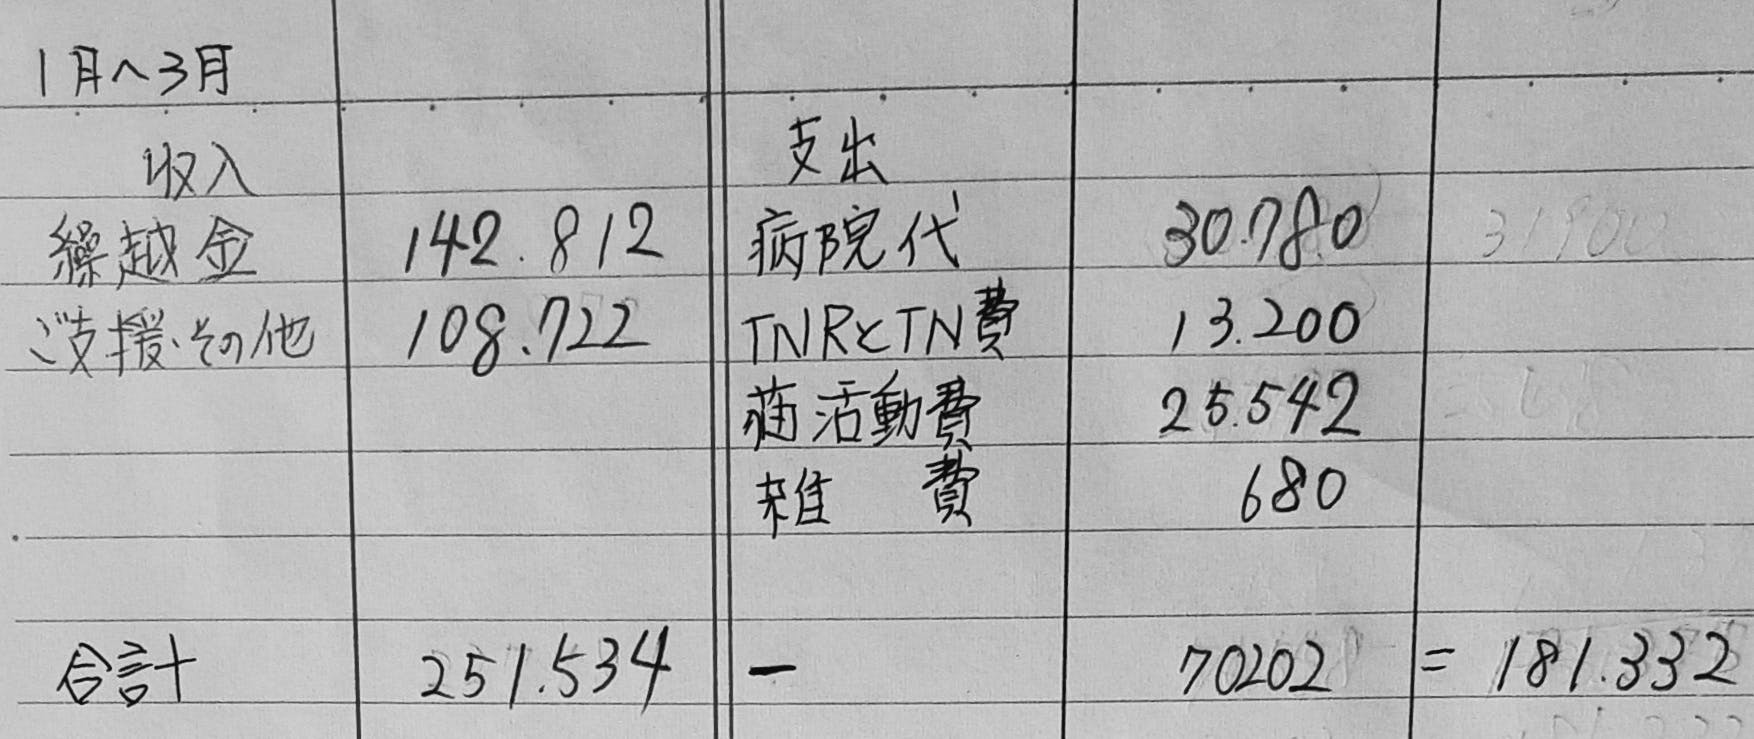 1月〜3月
収入 支出
繰越金 142.812 病院代 30.780
ご支援・その他 108.722 TNRとTN費 13.200
活動費 25.542
雑 費 680
合計 251.534 ー 70202 = 181.332